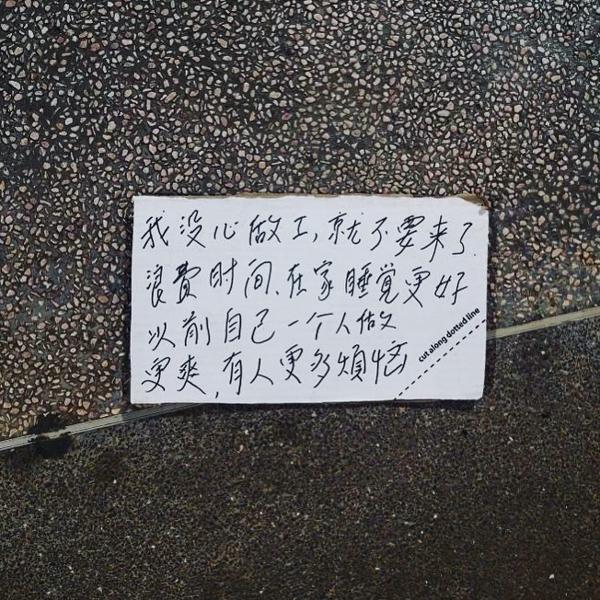 我没心做工，就不要来了.
浪费时间、在家睡觉更好
以前自己一个人做
更爽，有人更多烦恼
cut along dotted line